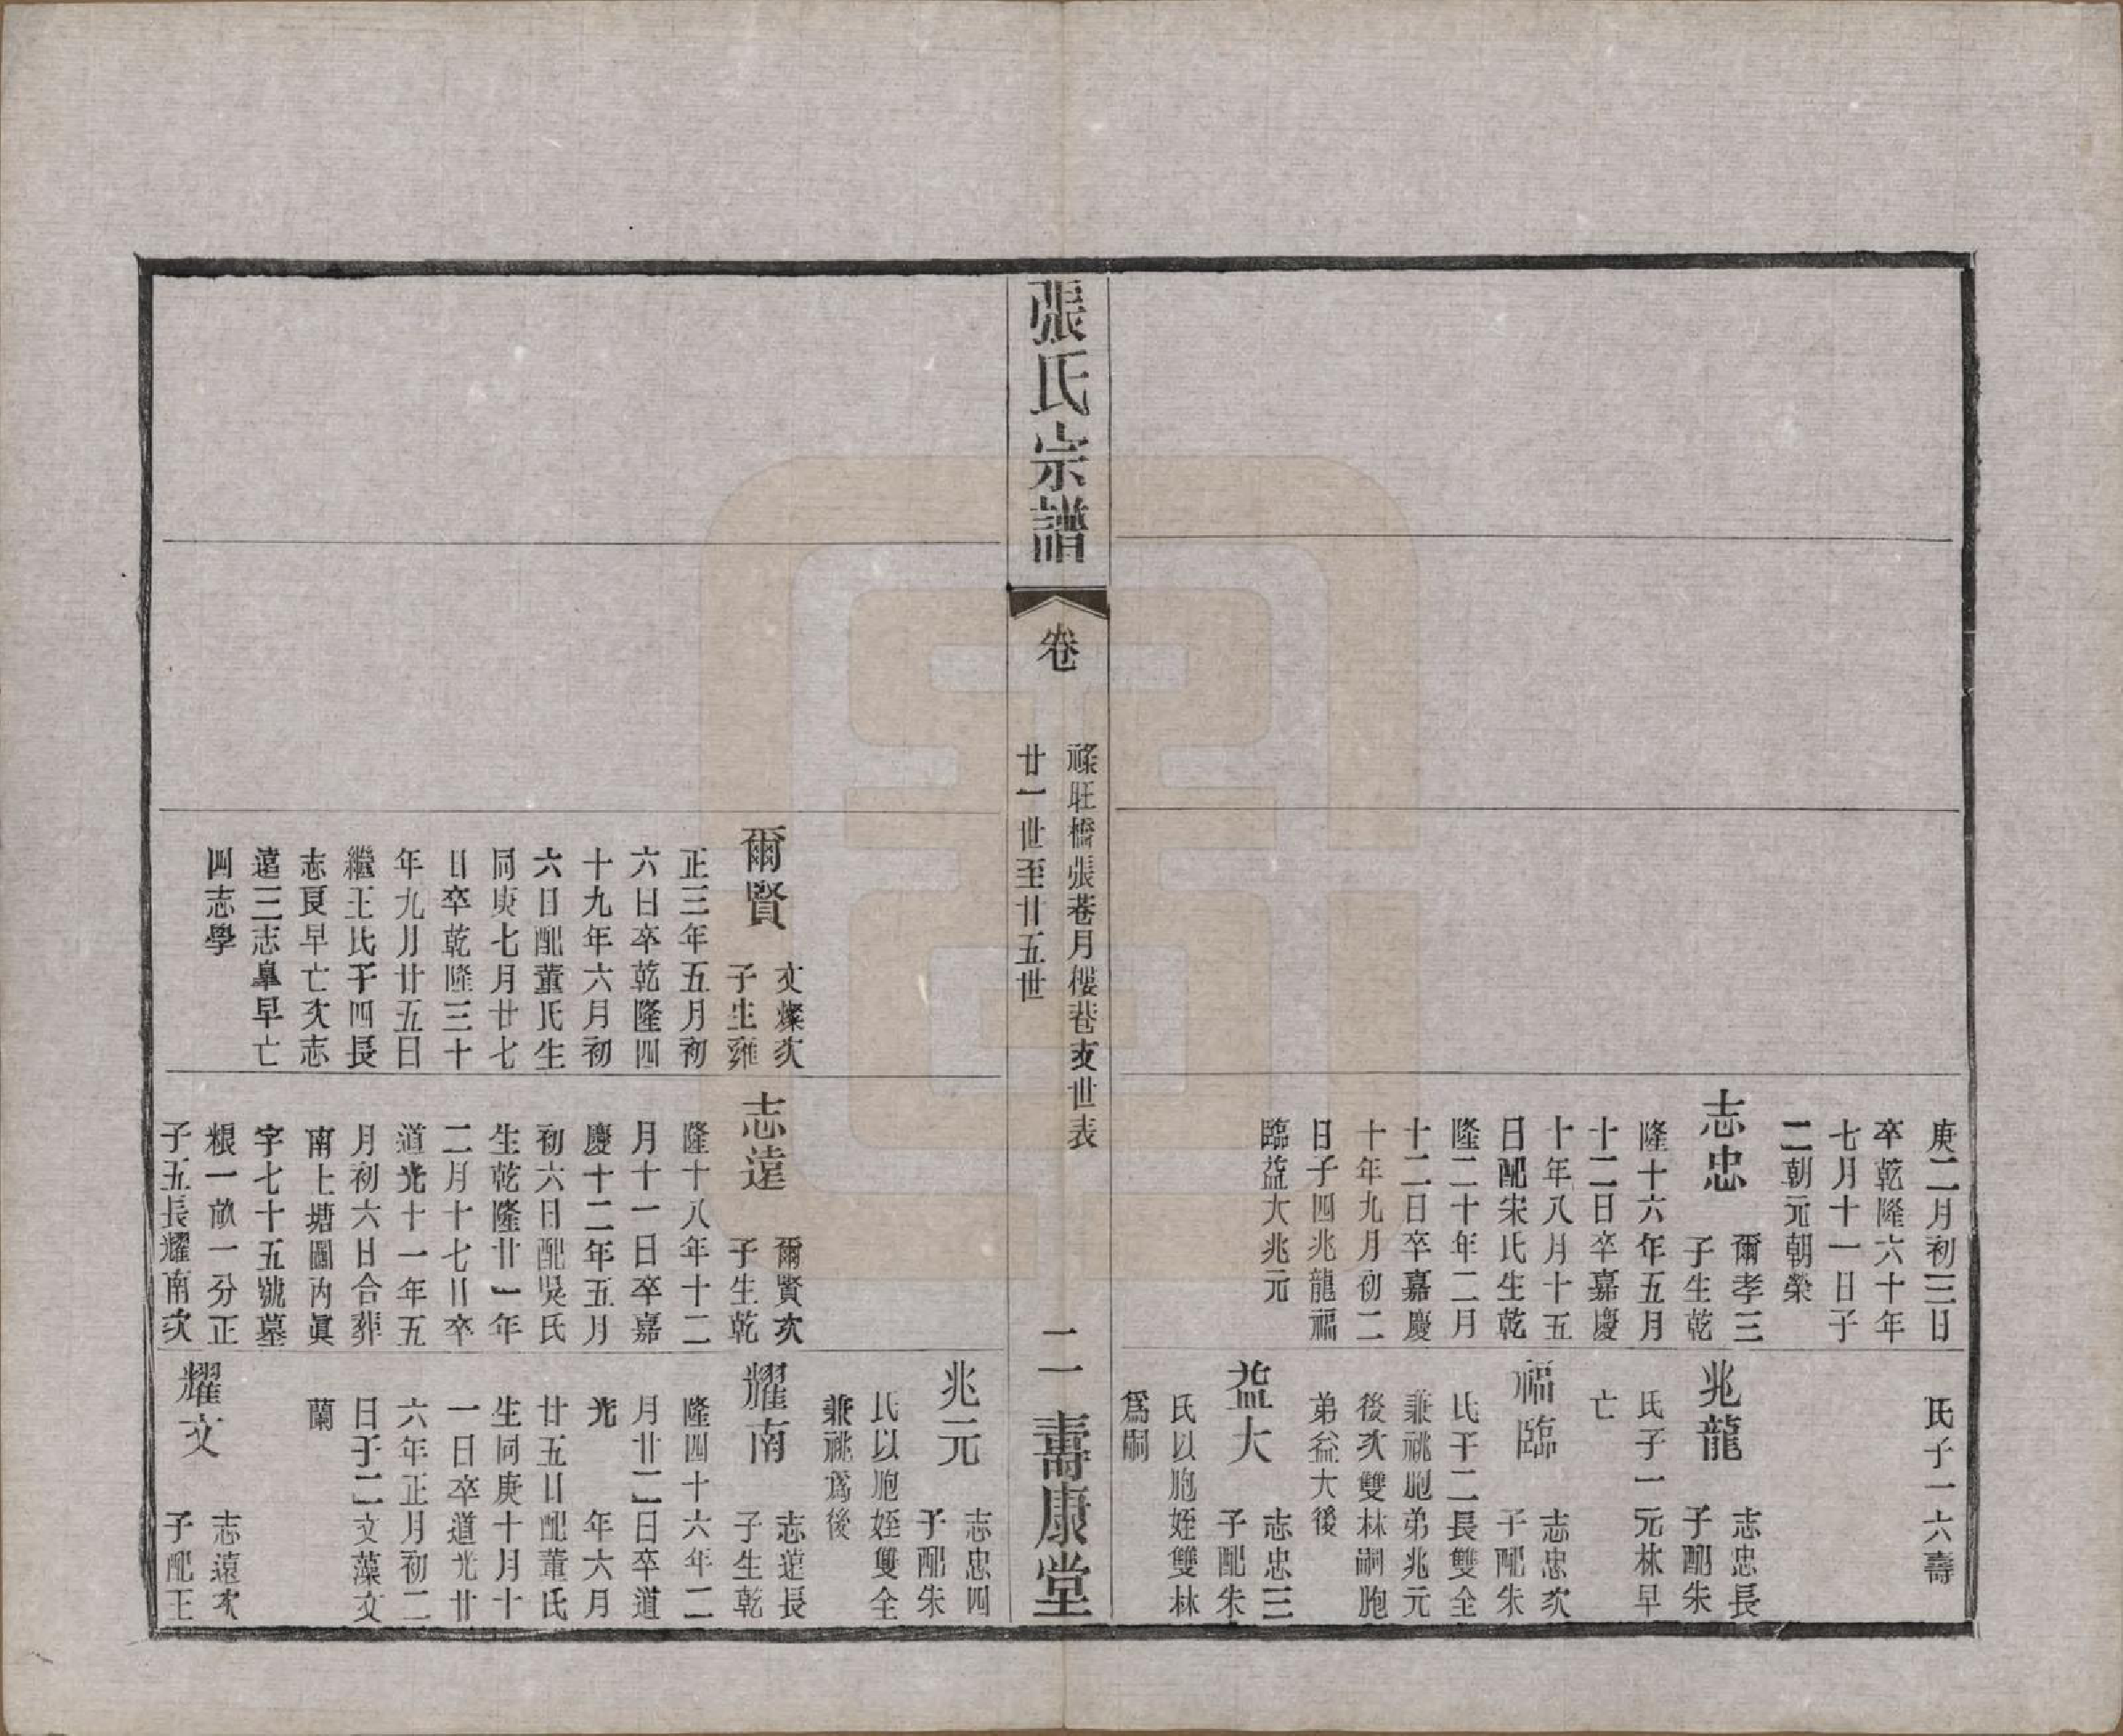 庚二月初三日
卒乾隆六十年
七月十一日子
二朝元朝榮
志忠
爾孝三
子生乾
隆十六年五月
十二日卒嘉慶
十年八月十五
日配宋氏生乾
隆二十年二月
十二日卒嘉慶
十年九月初二
日子四兆龍福
臨益大兆元
氏子一六壽
兆龍
志忠長
子配朱
氏子一元林早
亡
福臨
志忠次
子配朱
氏子二長雙全
兼祧胞弟兆元
後次雙林嗣胞
弟益大後
益大
志忠三
子配朱
氏以胞姪雙林
爲嗣
張氏宗譜
卷
祿旺橋張巷月樓巷支世表
廿一世至廿五世
二一
壽康堂
爾賢
文燦次
子生雍
正三年五月初
六日卒乾隆四
十九年六月初
六日配董氏生
同庚七月廿七
日卒乾隆三十
年九月廿五日
繼王氏子四長
志夏早亡次志
遠三志臯早亡
四志學
志遠
爾賢次
子生乾
隆十八年十二
月十一日卒嘉
慶十二年五月
初六日配吳氏
生乾隆廿一年
二月十七日卒
道光十一年五
月初六日合葬
南上塘圖內眞
字七十五號墓
糧一畝一分正
子五長耀南次
兆元
志忠四
子配朱
氏以胞姪雙全
兼祧爲後
耀南
志遠長
子生乾
隆四十六年二
月廿二日卒道
光　　年六月
廿五日配董氏
生同庚十月十
一日卒道光廿
六年正月初二
日子二文藻文
蘭
耀文
志遠次
子配王